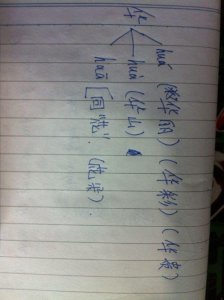 华
huá (华丽) (华彩) (华贵)
huà (华山)
huā [同"花"